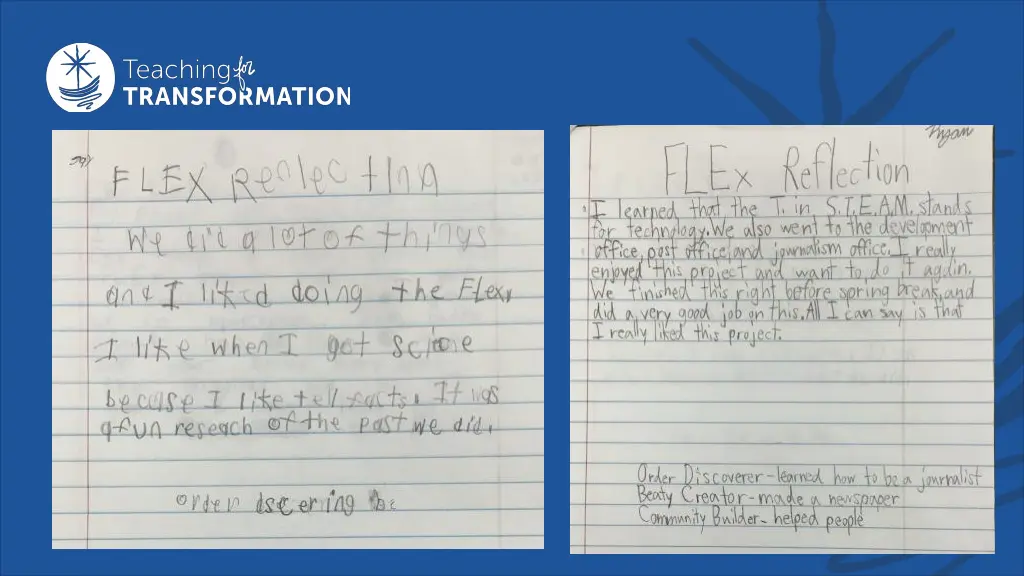 Teaching for
TRANSFORMATION
FLEX Reflection
We did a lot of things
and I liked doing the Flex,
I like when I got
because I like tell facts. It was
a fun reseach of the past we did.
order
Ryan
FLEx Reflection
I learned that the T. in S.T.E.A.M. stands
for technology. We also went to the development
office, post office, and journalism office. I really
enjoyed this project and want to do it again.
We finished this right before spring break, and
did a very good job on this. All I can say is that
I really liked this project.
Order Discoverer-learned how to be a journalist
Beaty Creator-made a newspaper
Community Builder-helped people